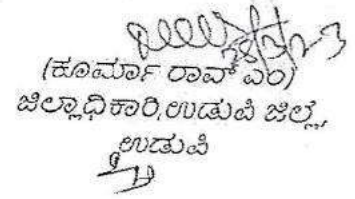 (ಕೂರ್ಮಾ ರಾವ್ ಎಂ)
ಜಿಲ್ಲಾಧಿಕಾರಿ,ಉಡುಪಿ ಜಿಲ್ಲೆ,
ಉಡುಪಿ